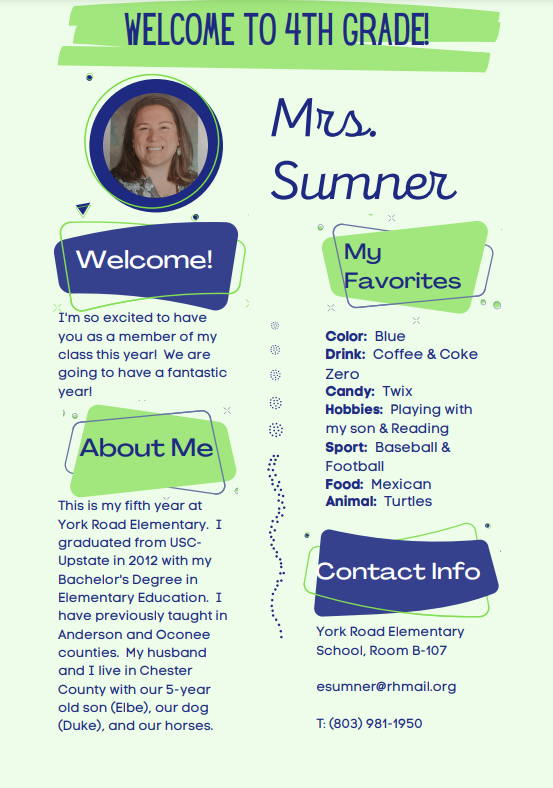 WELCOME TO 4TH GRADE!
Mrs.
Sumner
Welcome!
I'm so excited to have
you as a member of my
class this year!  We are
going to have a fantastic
year!
About Me
This is my fifth year at
York Road Elementary.  I
graduated from USC-
Upstate in 2012 with my
Bachelor's Degree in
Elementary Education.  I
have previously taught in
Anderson and Oconee
counties.  My husband
and I live in Chester
County with our 5-year
old son (Elbe), our dog
(Duke), and our horses.
My
Favorites
Color:  Blue
Drink:  Coffee & Coke
Zero
Candy:  Twix
Hobbies:  Playing with
my son & Reading
Sport:  Baseball &
Football
Food:  Mexican
Animal:  Turtles
Contact Info
York Road Elementary
School, Room B-107
esumner@rhmail.org
T: (803) 981-1950